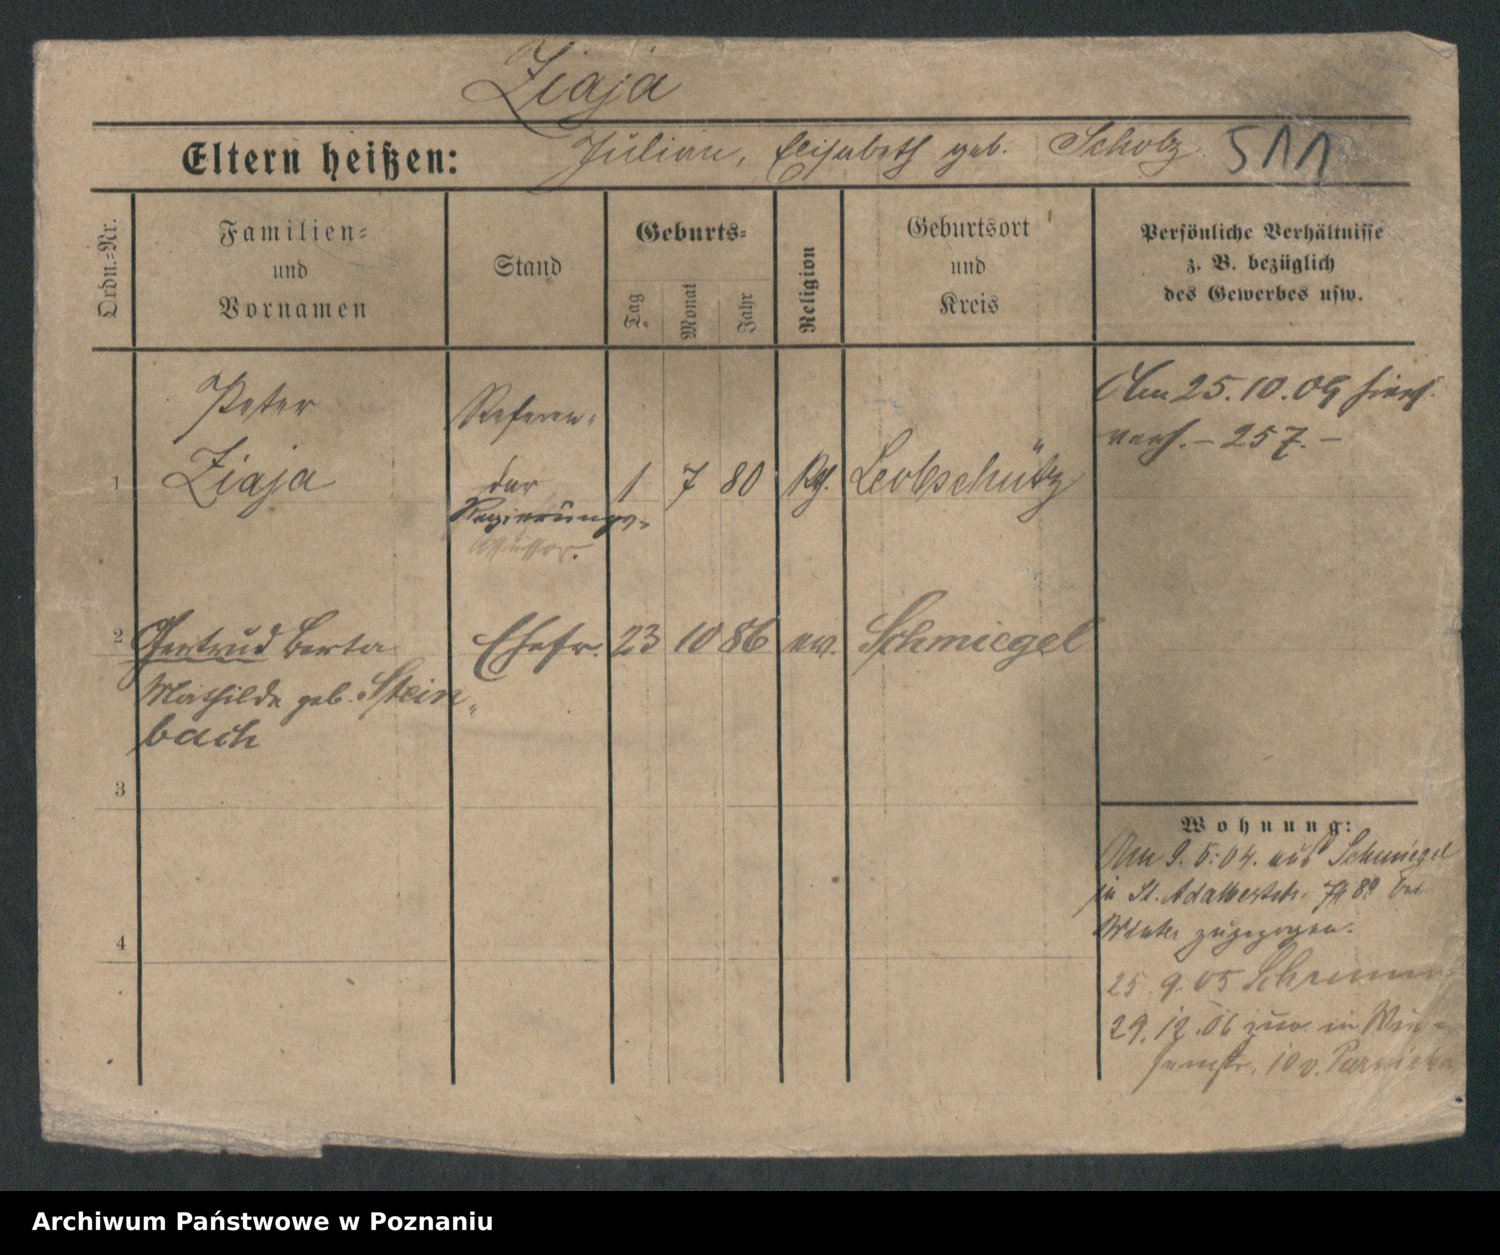 Ziaja
Eltern heißen: Julian, Elisabeth geb. Scholz 511
Ordn.=Nr.
Familien=
und
Vornamen
Stand
Geburts=
Tag
Monat
Jahr
Religion
Geburtsort
und
Kreis
Persönliche Verhältnisse
z. B. bezüglich
des Gewerbes usw.
Peter
Ziaja
Referen=
dar
Regierungs=
Assessor.
1
1 7 80 Leobschütz
Am 25.10.09 hier
verh. – 257. –
2
Gertrud Berta
Mathilde geb. Stein=
bach
Ehefr. 23 10 86 ev. Schmiegel
3
4
Wohnung:
Am 9.5.04. aus Schmiegel
in St. Adalbertstr. bei
Winter zugezogen.
25.9.05 Schrimm
29.12.06 in
10 v.
Archiwum Państwowe w Poznaniu